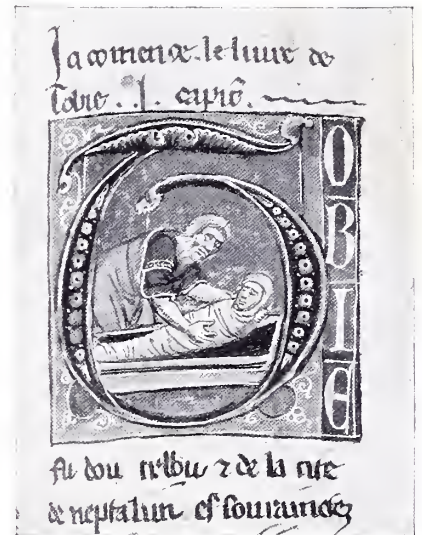 Ja comence le livre de
Tobie . I . capitre
TOBIE
fu dou tribu ⁊ de la cite
de neptalim es souraines